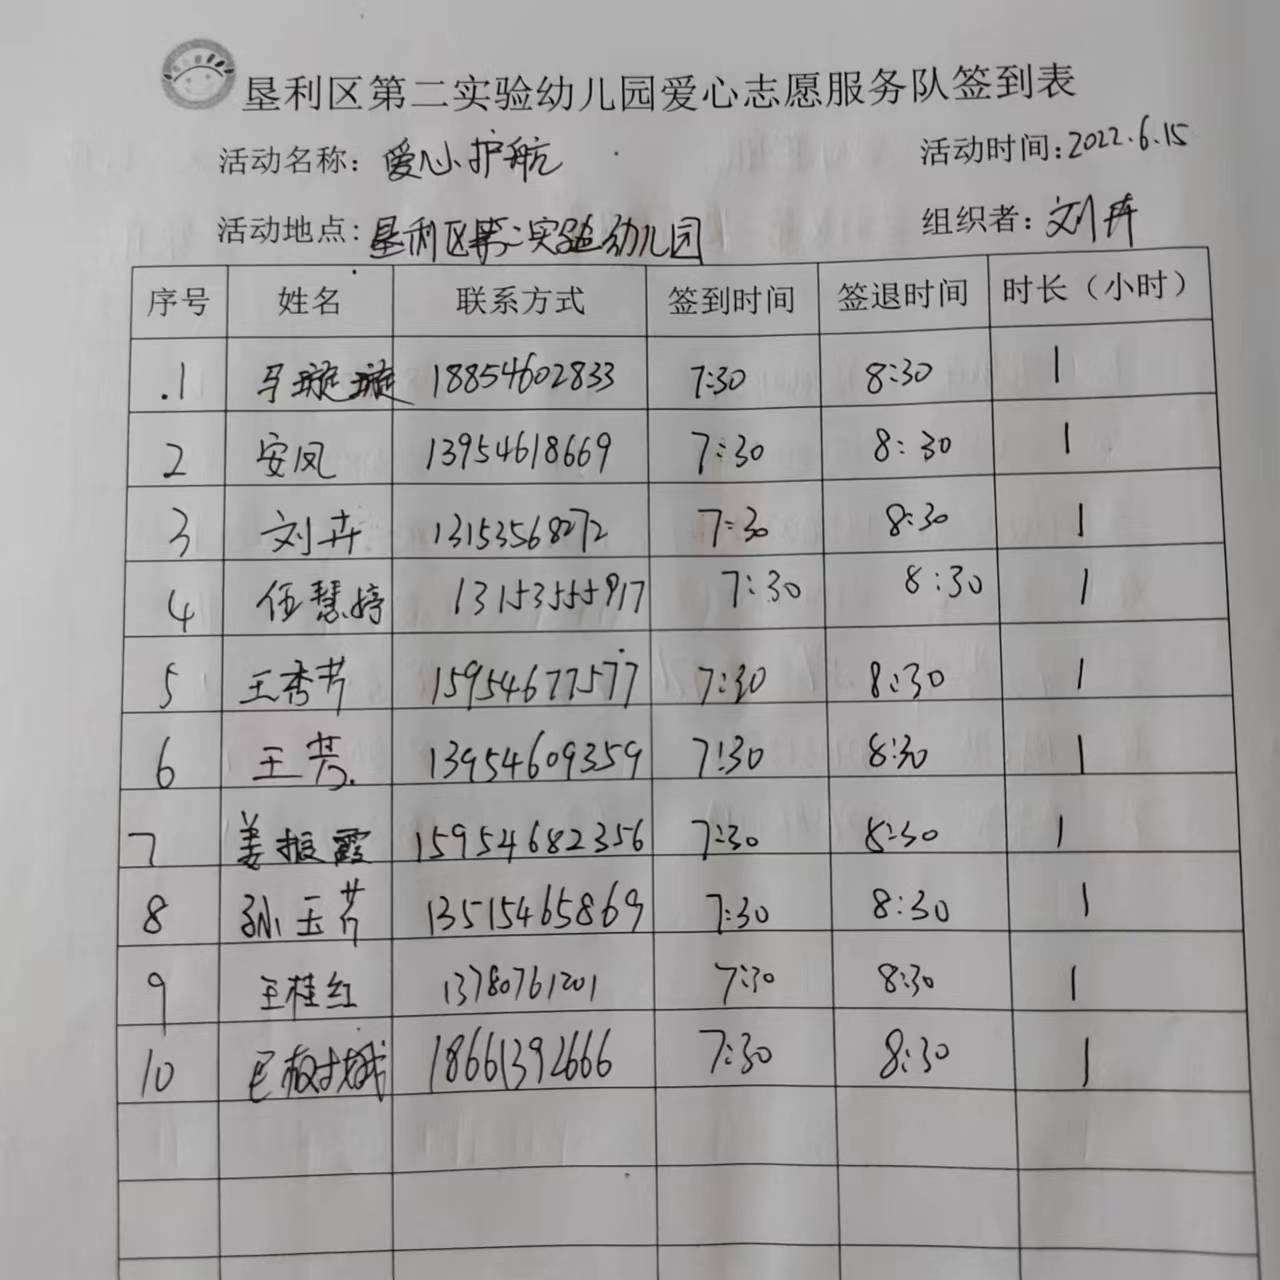 垦利区第二实验幼儿园爱心志愿服务队签到表
活动名称：爱心护航 活动时间：2022.6.15
活动地点：垦利区第二实验幼儿园 组织者：刘卉
序号 姓名 联系方式 签到时间 签退时间 时长（小时）
1 马璇璇 18854602833 7:30 8:30 1
2 安凤 13954618669 7:30 8:30 1
3 刘卉 13153568272 7:30 8:30 1
4 任慧婷 13153555917 7:30 8:30 1
5 王秀芹 15954677577 7:30 8:30 1
6 王芳 13954609359 7:30 8:30 1
7 姜振霞 15954682356 7:30 8:30 1
8 孙玉芹 13515465869 7:30 8:30 1
9 王桂红 13780761201 7:30 8:30 1
10 18661392666 7:30 8:30 1